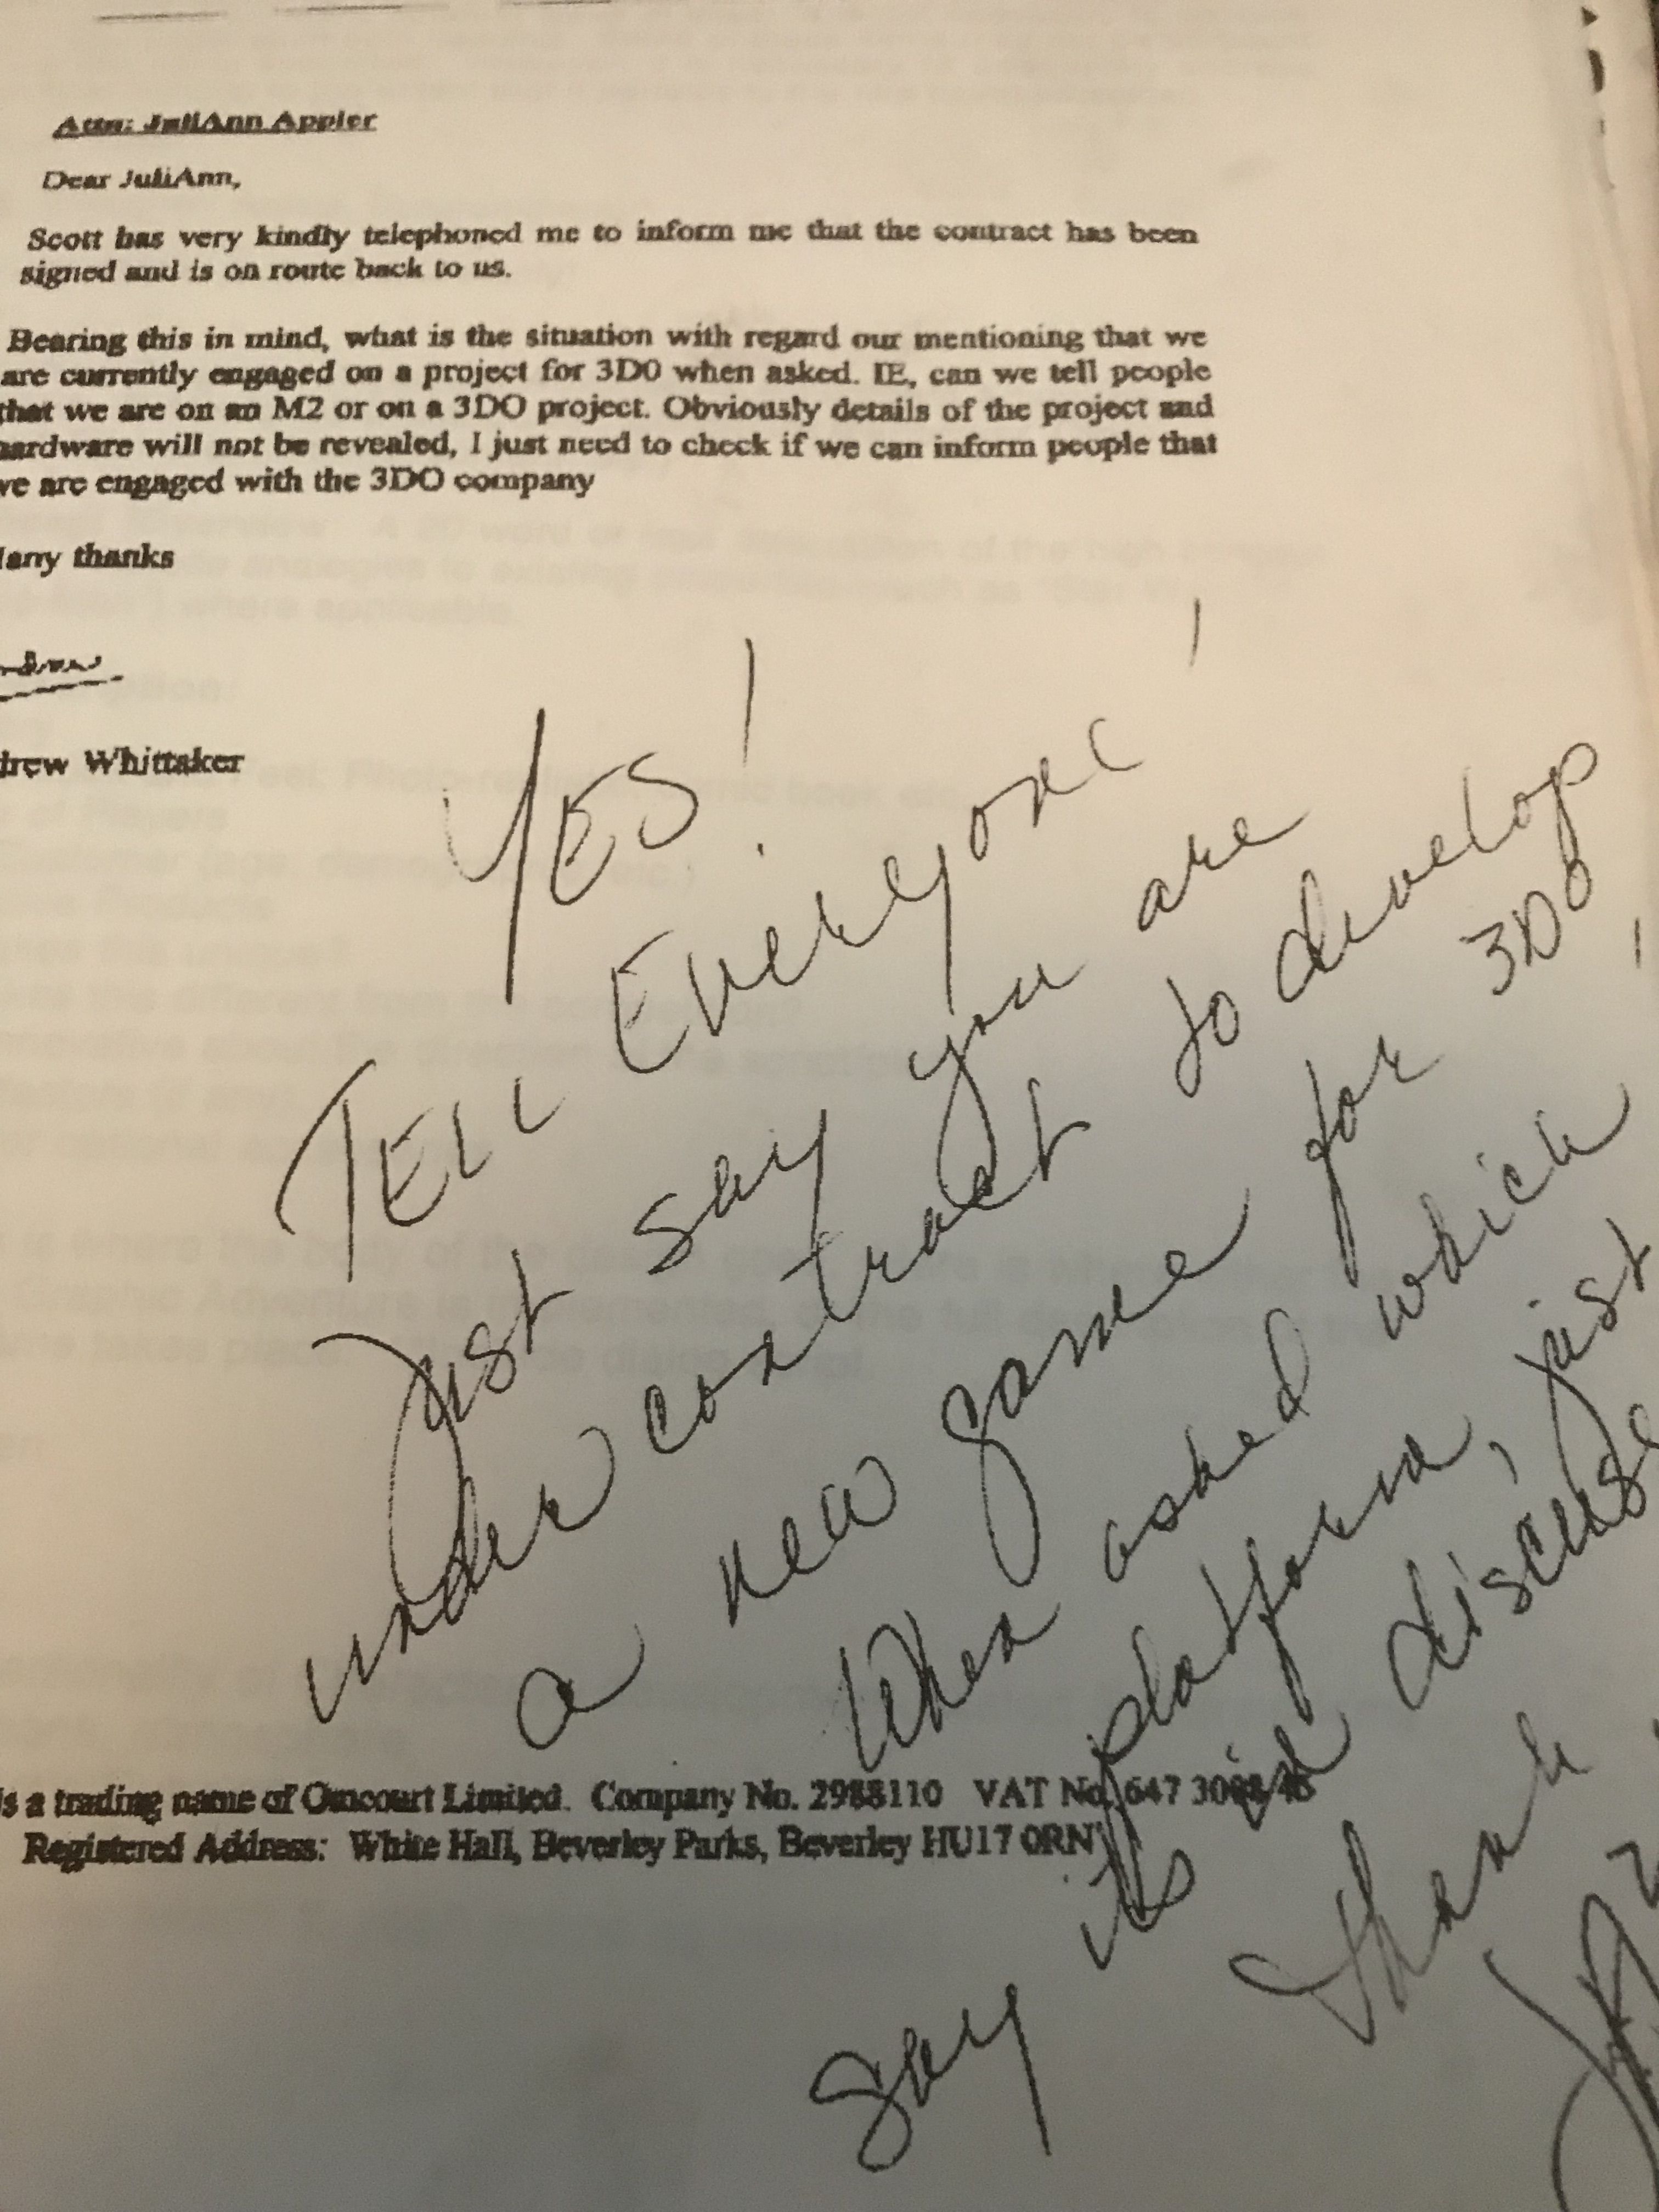 Attn: JuliAnn Appler
Dear JuliAnn,
Scott has very kindly telephoned me to inform me that the contract has been
signed and is on route back to us.
Bearing this in mind, what is the situation with regard our mentioning that we
are currently engaged on a project for 3D0 when asked. IE, can we tell people
that we are on an M2 or on a 3DO project. Obviously details of the project and
hardware will not be revealed, I just need to check if we can inform people that
we are engaged with the 3DO company
Many thanks
drew Whittaker
YES!
TELL Everyone!
Just say you are
under contract to develop
a new game for 3DO.
When asked which
platform, just
say it's in discuss
Thank
is a trading name of Omcourt Limited. Company No. 2988110 VAT No. 647 3008 46
Registered Address: White Hall, Beverley Parks, Beverley HU17 0RN